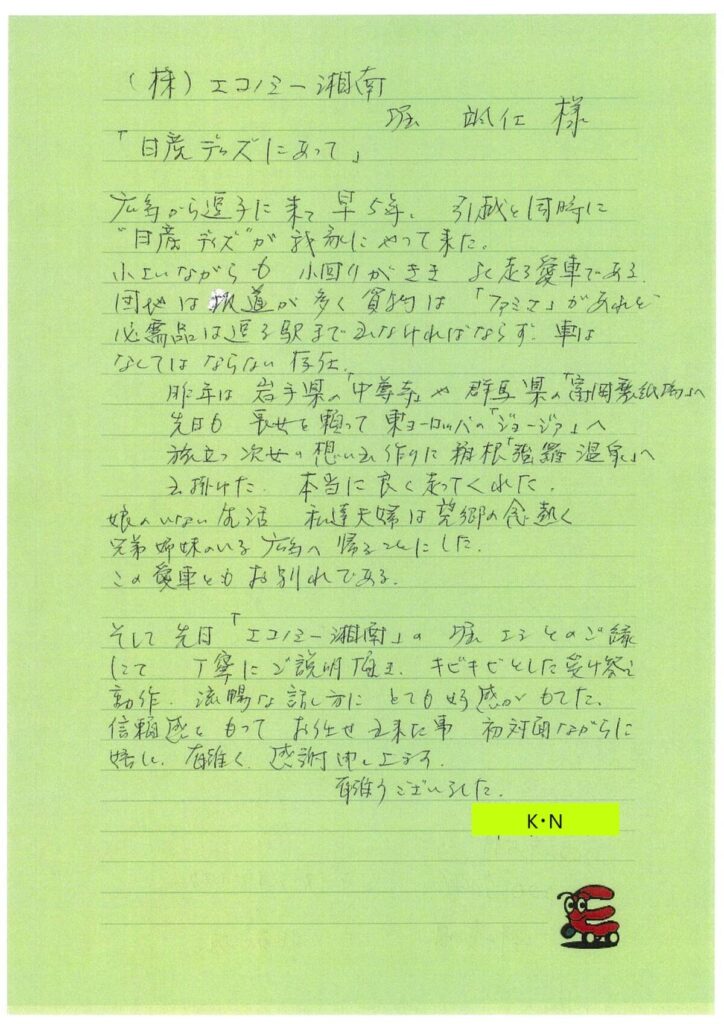 (株)エコノミー湘南
堀 様
「日産デイズにあって」
広島から逗子に来て早5年。引越と同時に
"日産デイズ"が我家にやって来た。
小さいながらも 小回りがきき よく走る愛車である。
団地は坂道が多く買物は「ファミマ」があれど
必需品は逗子駅まで出なければならず、車は
なくてはならない存在。
昨年は岩手県の「中尊寺」や群馬県の「富岡製紙場」へ
先日も長女を頼って東ヨーロッパの「ジョージア」へ
旅立つ次女の想い出作りに箱根「強羅温泉」へ
出掛けた。本当に良く走ってくれた。
娘のいない生活 私達夫婦は望郷の念熱く
兄弟姉妹のいる広島へ帰ることにした。
この愛車ともお別れである。
そして先日「エコノミー湘南」の堀 とのご縁
にて 丁寧にご説明頂き、キビキビとした受け答え
動作、流暢な話し方に とても好感がもてた。
信頼感をもって お任せ出来た事 初対面ながらに
嬉しく、有難く、感謝申し上げます。
有難うございました。
K・N